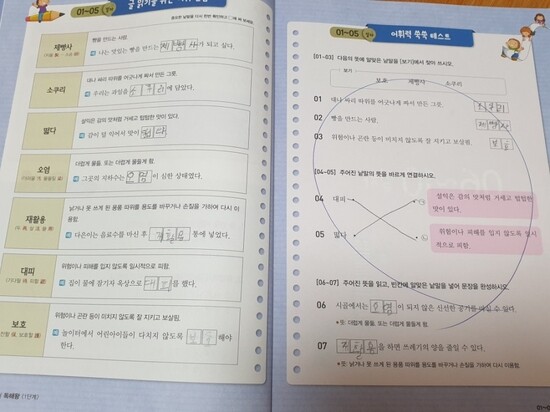 01~05
글 읽기를 위한
제빵사
빵을 만드는 사람.
나는 맛있는 빵을 만드는 제빵사가 되고 싶다.
소쿠리
대나 싸리 따위를 어긋나게 짜서 만든 그릇.
우리는 과일을 소쿠리에 담았다.
떫다
설익은 감의 맛처럼 거세고 텁텁한 맛이 있다.
감이 덜 익어서 맛이 떫다.
오염
더럽게 물듦. 또는 더럽게 물들게 함.
그곳의 지하수는 오염이 심한 상태였다.
재활용
낡거나 못 쓰게 된 용품 따위를 용도를 바꾸거나 손질을 가하여 다시 이
용함.
다은이는 음료수를 마신 후 재활용 통에 넣었다.
대피
위험이나 피해를 입지 않도록 일시적으로 피함.
집이 물에 잠기자 옥상으로 대피를 했다.
보호
위험이나 곤란 등이 미치지 않도록 잘 지키고 보살핌.
놀이터에서 어린아이들이 다치지 않도록 보호해야
한다.
독해왕 (1단계)
01~05
어휘력 쑥쑥 테스트
[01~03] 다음의 뜻에 알맞은 낱말을 [보기]에서 찾아 쓰시오.
보기
보호 제빵사 소쿠리
01 대나 싸리 따위를 어긋나게 짜서 만든 그릇. 소쿠리
02 빵을 만드는 사람. 제빵사
03 위험이나 곤란 등이 미치지 않도록 잘 지키고 보살핌. 보호
[04~05] 주어진 낱말의 뜻을 바르게 연결하시오.
04 대피
설익은 감의 맛처럼 거세고 텁텁한
맛이 있다.
05 떫다
위험이나 피해를 입지 않도록 일시
적으로 피함.
[06~07] 주어진 뜻을 읽고, 빈칸에 알맞은 낱말을 넣어 문장을 완성하시오.
06 시골에서는 오염이 되지 않은 신선한 공기를 마실 수 있다.
*뜻: 더럽게 물듦. 또는 더럽게 물들게 함.
07 재활용을 하면 쓰레기의 양을 줄일 수 있다.
*뜻: 낡거나 못 쓰게 된 용품 따위를 용도를 바꾸거나 손질을 가하여 다시 이용함.